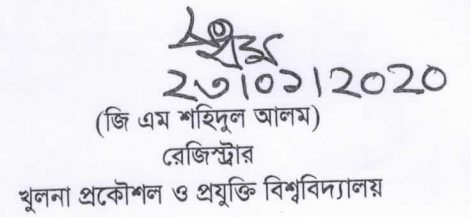 ২৩|০১|2020
(জি এম শহিদুল আলম)
রেজিস্ট্রার
খুলনা প্রকৌশল ও প্রযুক্তি বিশ্ববিদ্যালয়